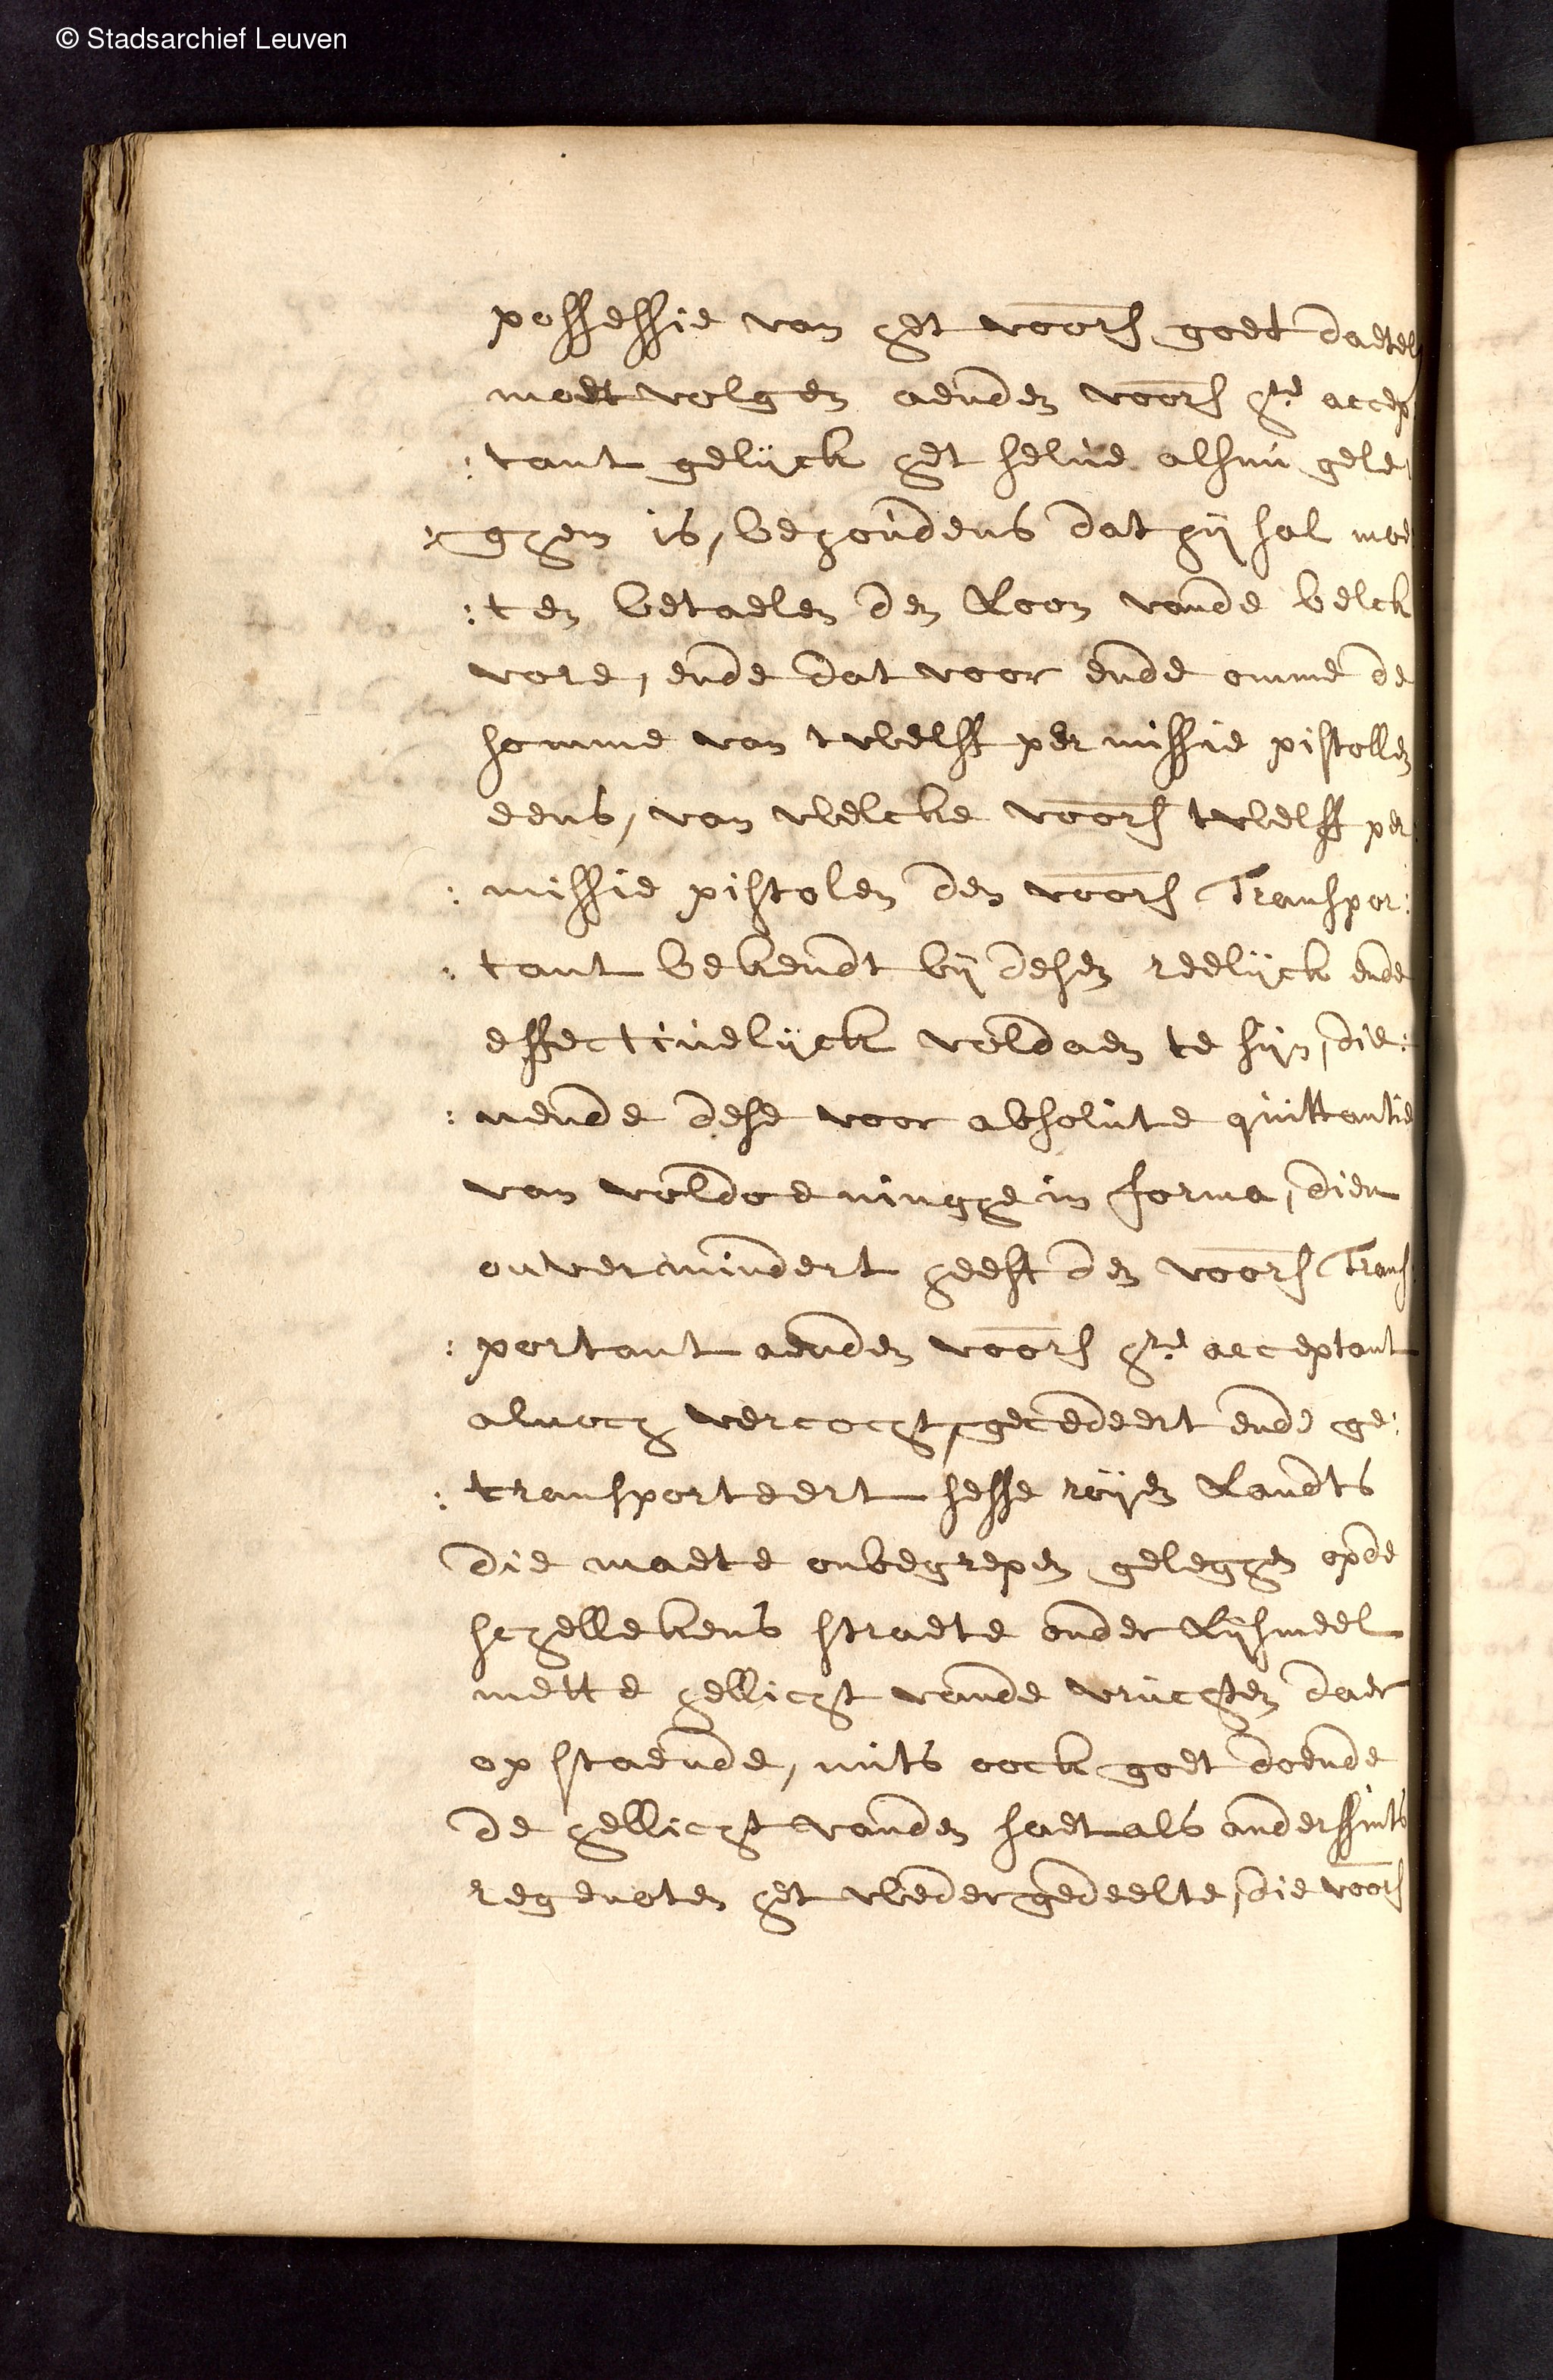 © Stadsarchief Leuven
possessie van het voors goet daetel
moet volgen aenden voors hre accep
:tant gelijck het selue alsnu gele
:ghen is, behoudens dat hij sal moe
:ten betaelen den Loon vande belck
vore, ende dat voor ende omme de
somme van twelff permissie pistollen
eens, van welcke voors twelff per
:missie pistolen den voors Transpor:
:tant bekendt bij desen reelijck ende
effectiuelijck voldaen te sijn, die:
:nende dese voor absolute quittantie
van voldoeninghe in forma, dien
onvermindert heeft den voors Trans
:portant aenden voors hre acceptant
alnoch vercocht, gecedeert ende ge:
:transporteert sesse roijen Landts
die maete onbegrepen geleghen opde
schellekens straete onder Lijsmeel
mette hellicht vande vruchten daer
op staende, mits oock goet doende
de hellicht vanden saet als anderssints
regenoten het wedergedeelte, die voors